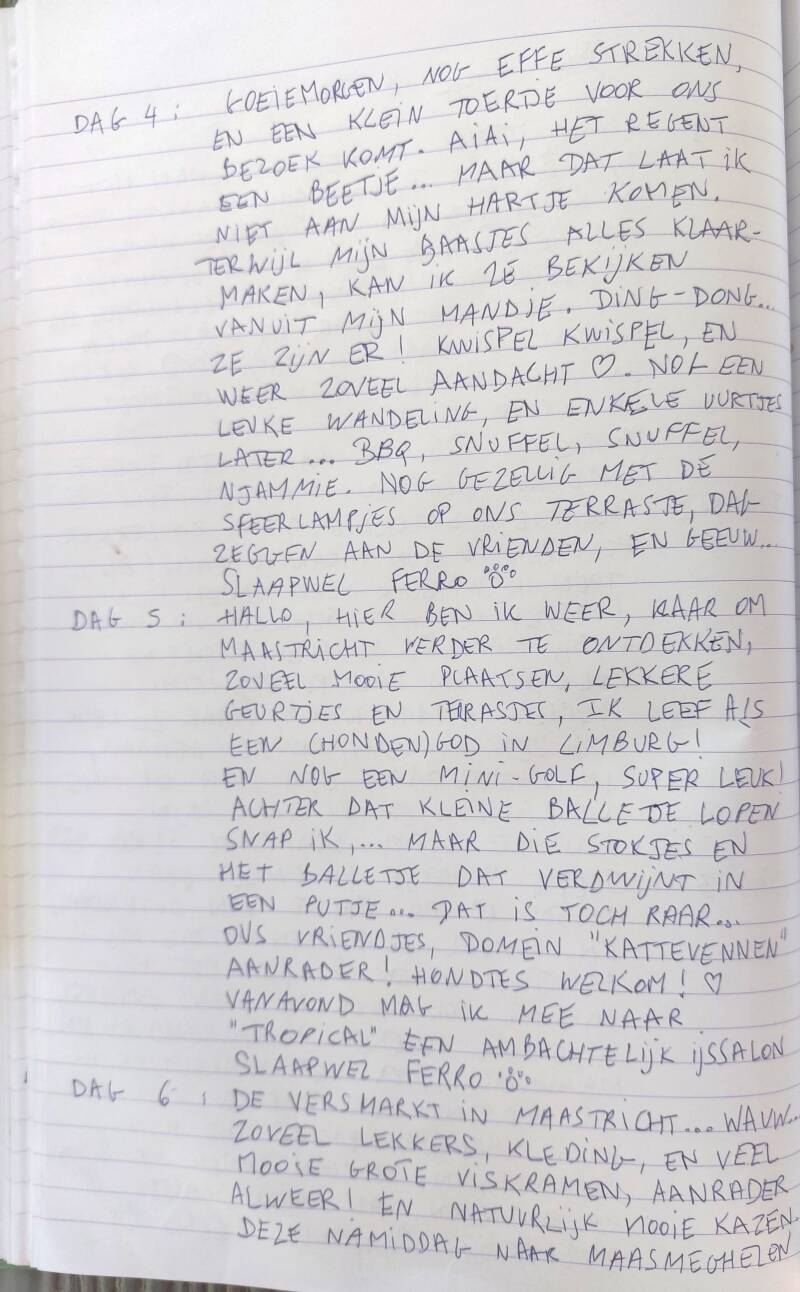 DAG 4: GOEIEMORGEN, NOG EFFE STREKKEN,
EN EEN KLEIN TOERTJE VOOR ONS
BEZOEK KOMT. AiAi, HET REGENT
EEN BEETJE... MAAR DAT LAAT iK
NIET AAN MijN HARTJE KOMEN.
TERWijL MijN BAASJES ALLES KLAAR-
MAKEN, KAN iK ZE BEKIJKEN
VANUIT MijN MANDJE. DING-DONG...
ZE ZijN ER! KWISPEL KWISPEL, EN
WEER ZOVEEL AANDACHT ♡. NOG EEN
LEUKE WANDELING, EN ENKELE UURTJES
LATER... BBQ, SNUFFEL, SNUFFEL,
NJAMMIE. NOG GEZELLIG MET DE
SFEERLAMPJES OP ONS TERRASJE, DAG
ZEGGEN AAN DE VRIENDEN, EN GEEUW...
SLAAPWEL FERRO
DAG 5: HALLO, HIER BEN iK WEER, KLAAR OM
MAASTRICHT VERDER TE ONTDEKKEN,
ZOVEEL MOOIE PLAATSEN, LEKKERE
GEURTJES EN TERRASJES, IK LEEF ALS
EEN (HONDEN)GOD IN LIMBURG!
EN NOG EEN MINI-GOLF, SUPER LEUK!
ACHTER DAT KLEINE BALLETJE LOPEN
SNAP iK,... MAAR DIE STOKJES EN
HET BALLETJE DAT VERDWIJNT IN
EEN PUTJE... DAT IS TOCH RAAR...
DUS VRIENDJES, DOMEIN "KATTEVENNEN"
AANRADER! HONDJES WELKOM! ♡
VANAVOND MAG iK MEE NAAR
"TROPICAL" EEN AMBACHTELIJK IJSSALON
SLAAPWEL FERRO
DAG 6: DE VERSMARKT IN MAASTRICHT... WAUW...
ZOVEEL LEKKERS, KLEDING, EN VEEL
MOOIE GROTE VISKRAMEN, AANRADER
ALWEER! EN NATUURLIJK MOOIE KAZEN.
DEZE NAMIDDAG NAAR MAASMECHELEN